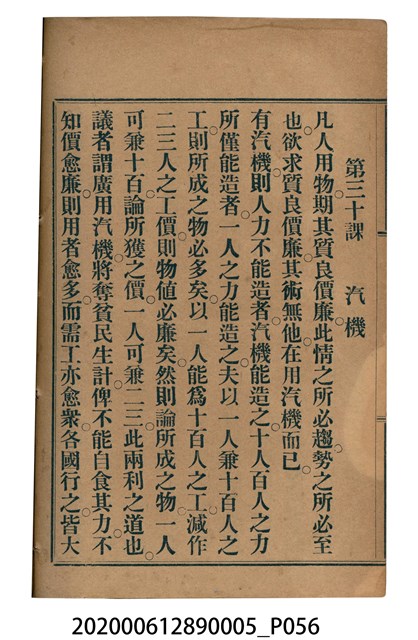 第三十課　汽機
凡人用物。期其質良價廉。此情之所必趨。勢之所必至
也。欲求質良價廉。其術無他。在用汽機而已。
有汽機。則人力不能造者。汽機能造之。十人百人之力
所僅能造者。一人之力能造之。夫以一人兼十百人之
工。則所成之物必多矣。以一人能爲十百人之工。減作
二三人之工價。則物値必廉矣。然則論所成之物。一人
可兼十百。論所獲之價。一人可兼二三。此兩利之道也。
議者謂廣用汽機。將奪貧民生計。俾不能自食其力。不
知價愈廉。則用者愈多。而需工亦愈衆。各國行之。皆大
202000612890005_P056